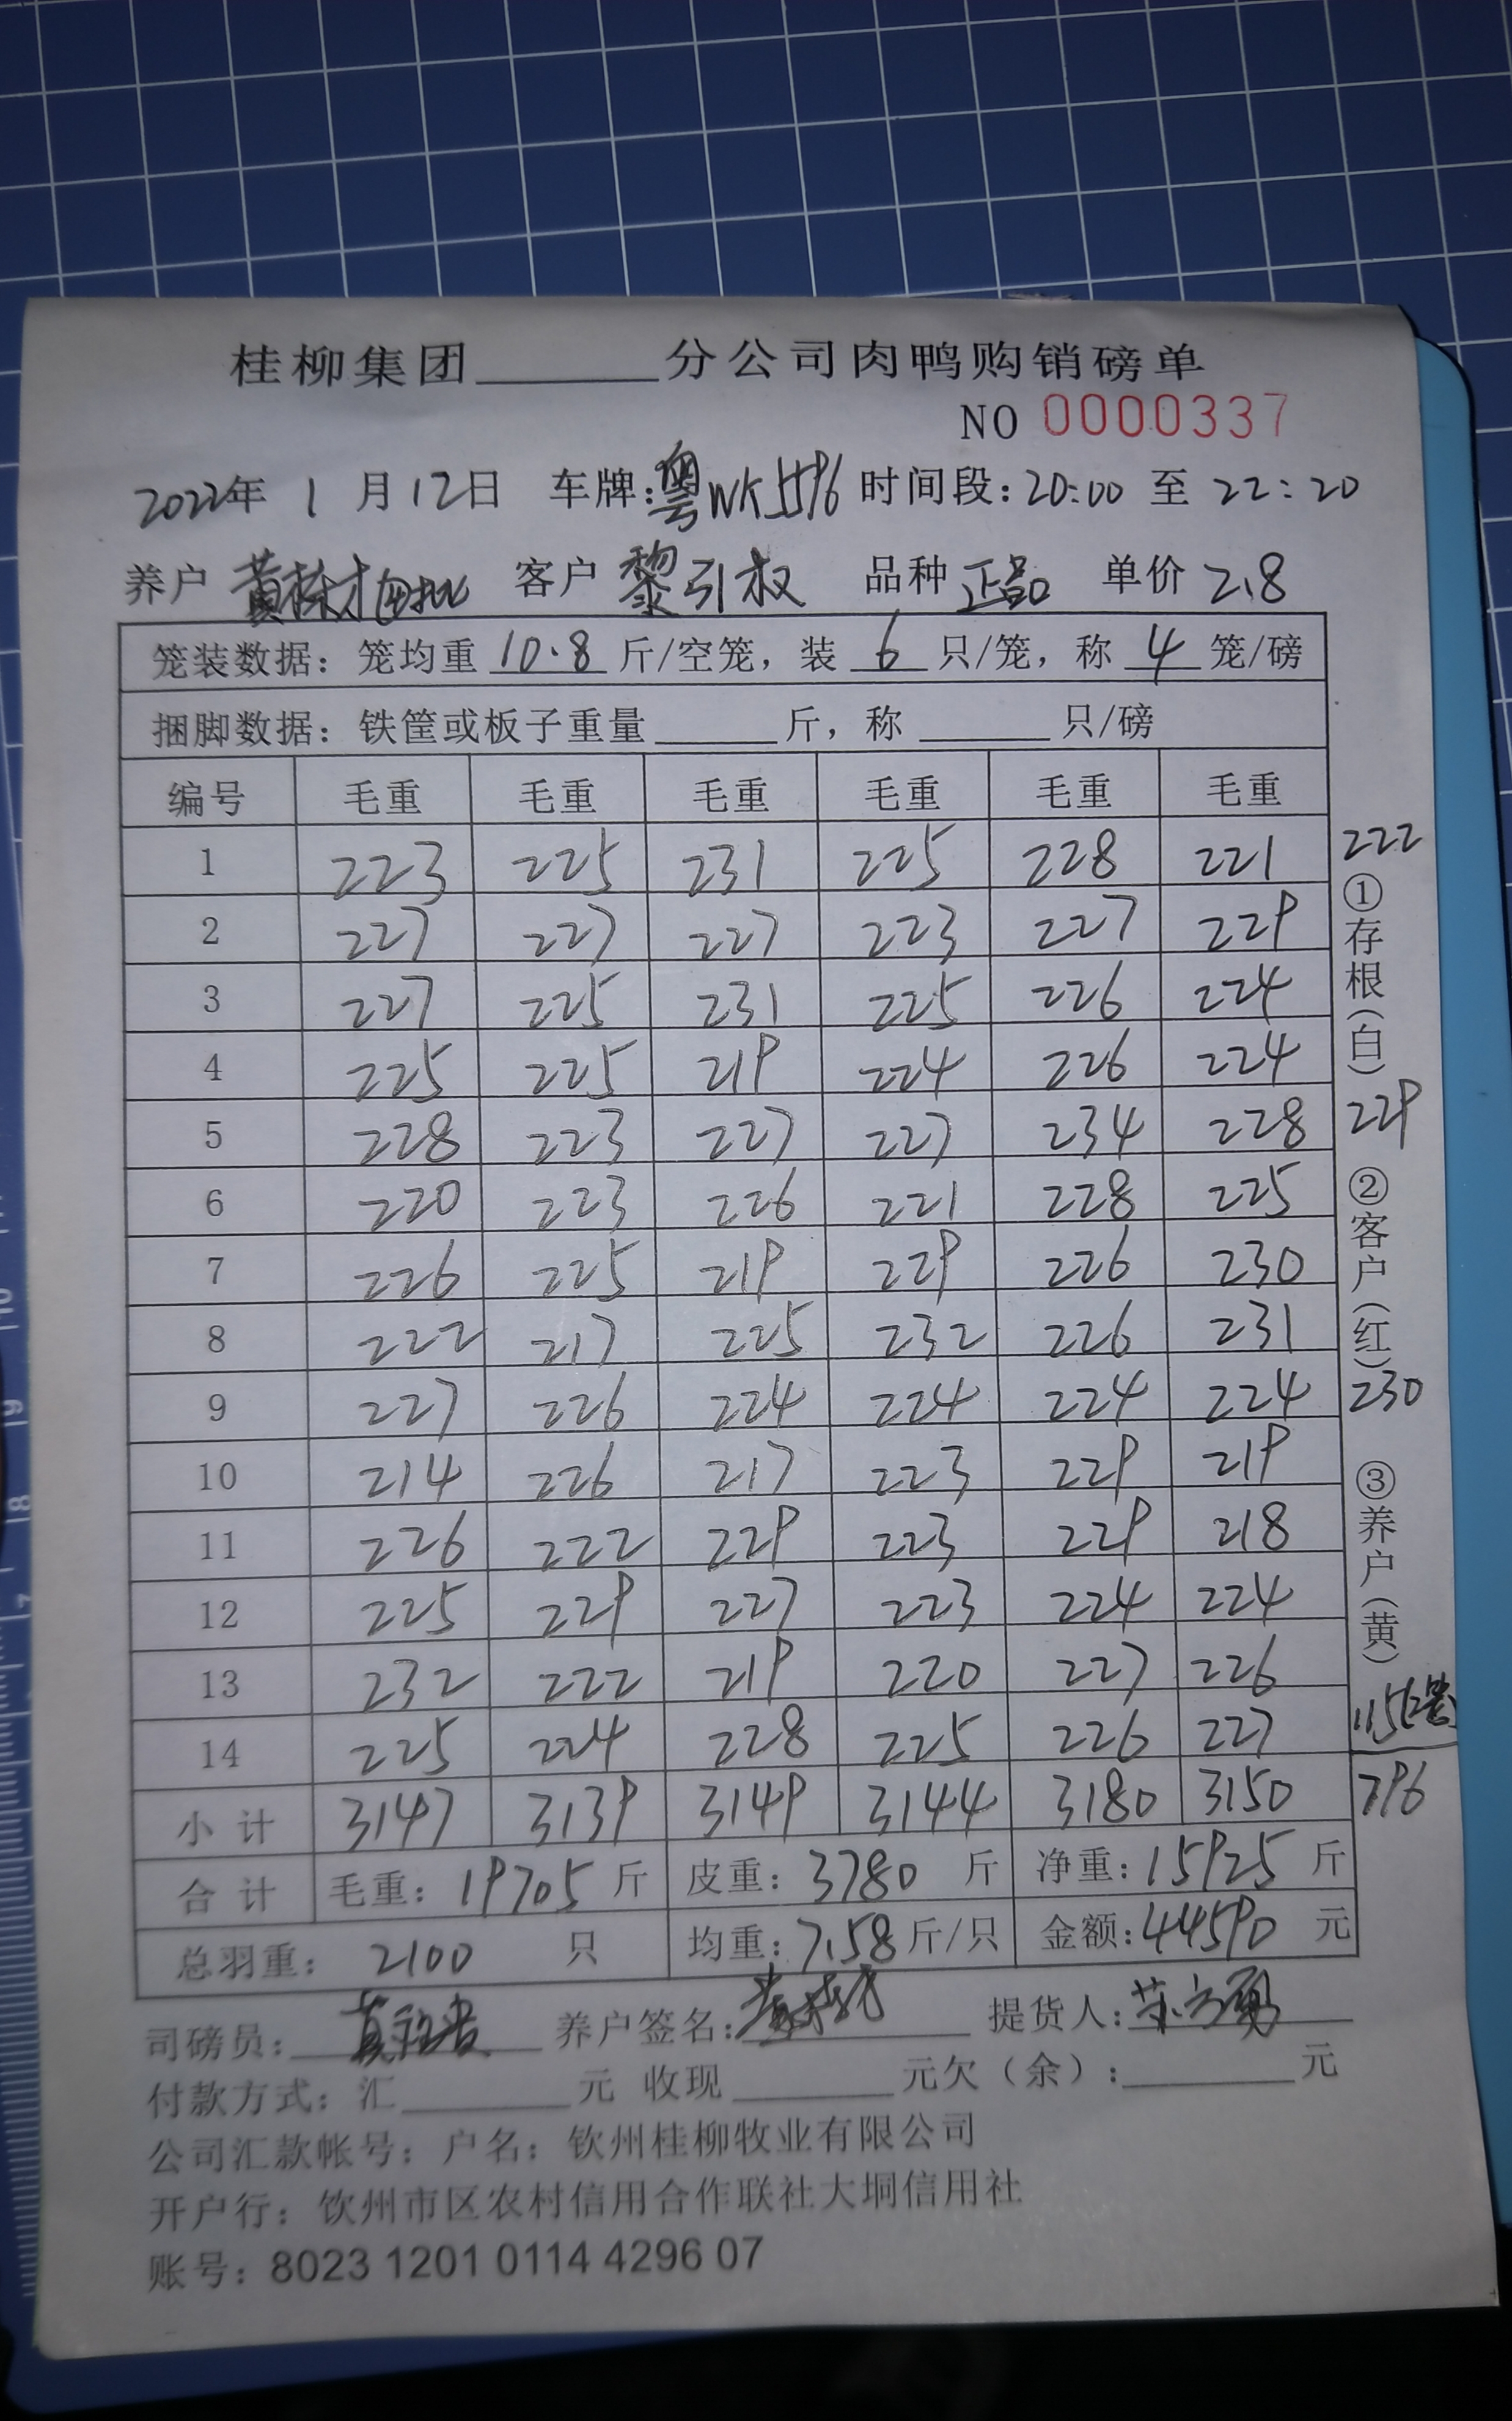 桂柳集团______分公司肉鸭购销磅单
NO 0000337
2022年 1 月 12日 车牌:粤WK5596 时间段:20:00 至 22:20
养户 黄栋才 客户 黎引权 品种 正品 单价 2.8
笼装数据: 笼均重 10.8 斤/空笼, 装 6 只/笼, 称 4 笼/磅
捆脚数据: 铁筐或板子重量______斤, 称______只/磅
编号 毛重 毛重 毛重 毛重 毛重 毛重
1 223 225 231 225 228 221 222
2 227 227 227 223 227 229
3 227 225 231 225 226 224
4 225 225 219 224 226 224
5 228 223 227 227 234 228 229
6 220 223 226 221 228 225
7 226 225 219 229 226 230
8 222 217 225 232 226 231
9 227 226 224 224 224 224 230
10 214 226 217 223 229 219
11 226 222 229 223 229 218
12 225 229 227 223 224 224
13 232 222 219 220 227 226
14 225 224 228 225 226 227 115
小计 3147 3139 3149 3144 3180 3150 796
合计 毛重: 19705 斤 皮重: 3780 斤 净重: 15925 斤
总羽重: 2100 只 均重: 7.58 斤/只 金额: 44590 元
司磅员: 养户签名: 提货人:
付款方式: 汇______元 收现______元欠(余):______元
公司汇款帐号: 户名: 钦州桂柳牧业有限公司
开户行: 钦州市区农村信用合作联社大垌信用社
账号: 8023 1201 0114 4296 07
①存根(白)
②客户(红)
③养户(黄)